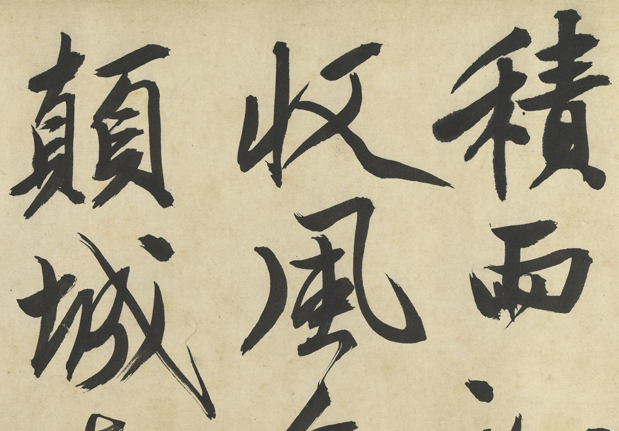 積雨
收風
顛城